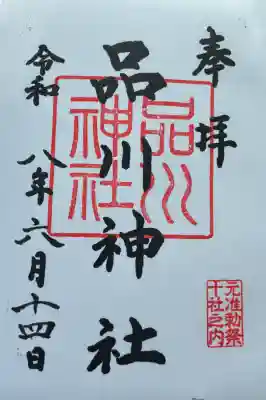 奉拝
品川神社
品川神社
元准勅祭
十社之内
令和八年六月十四日